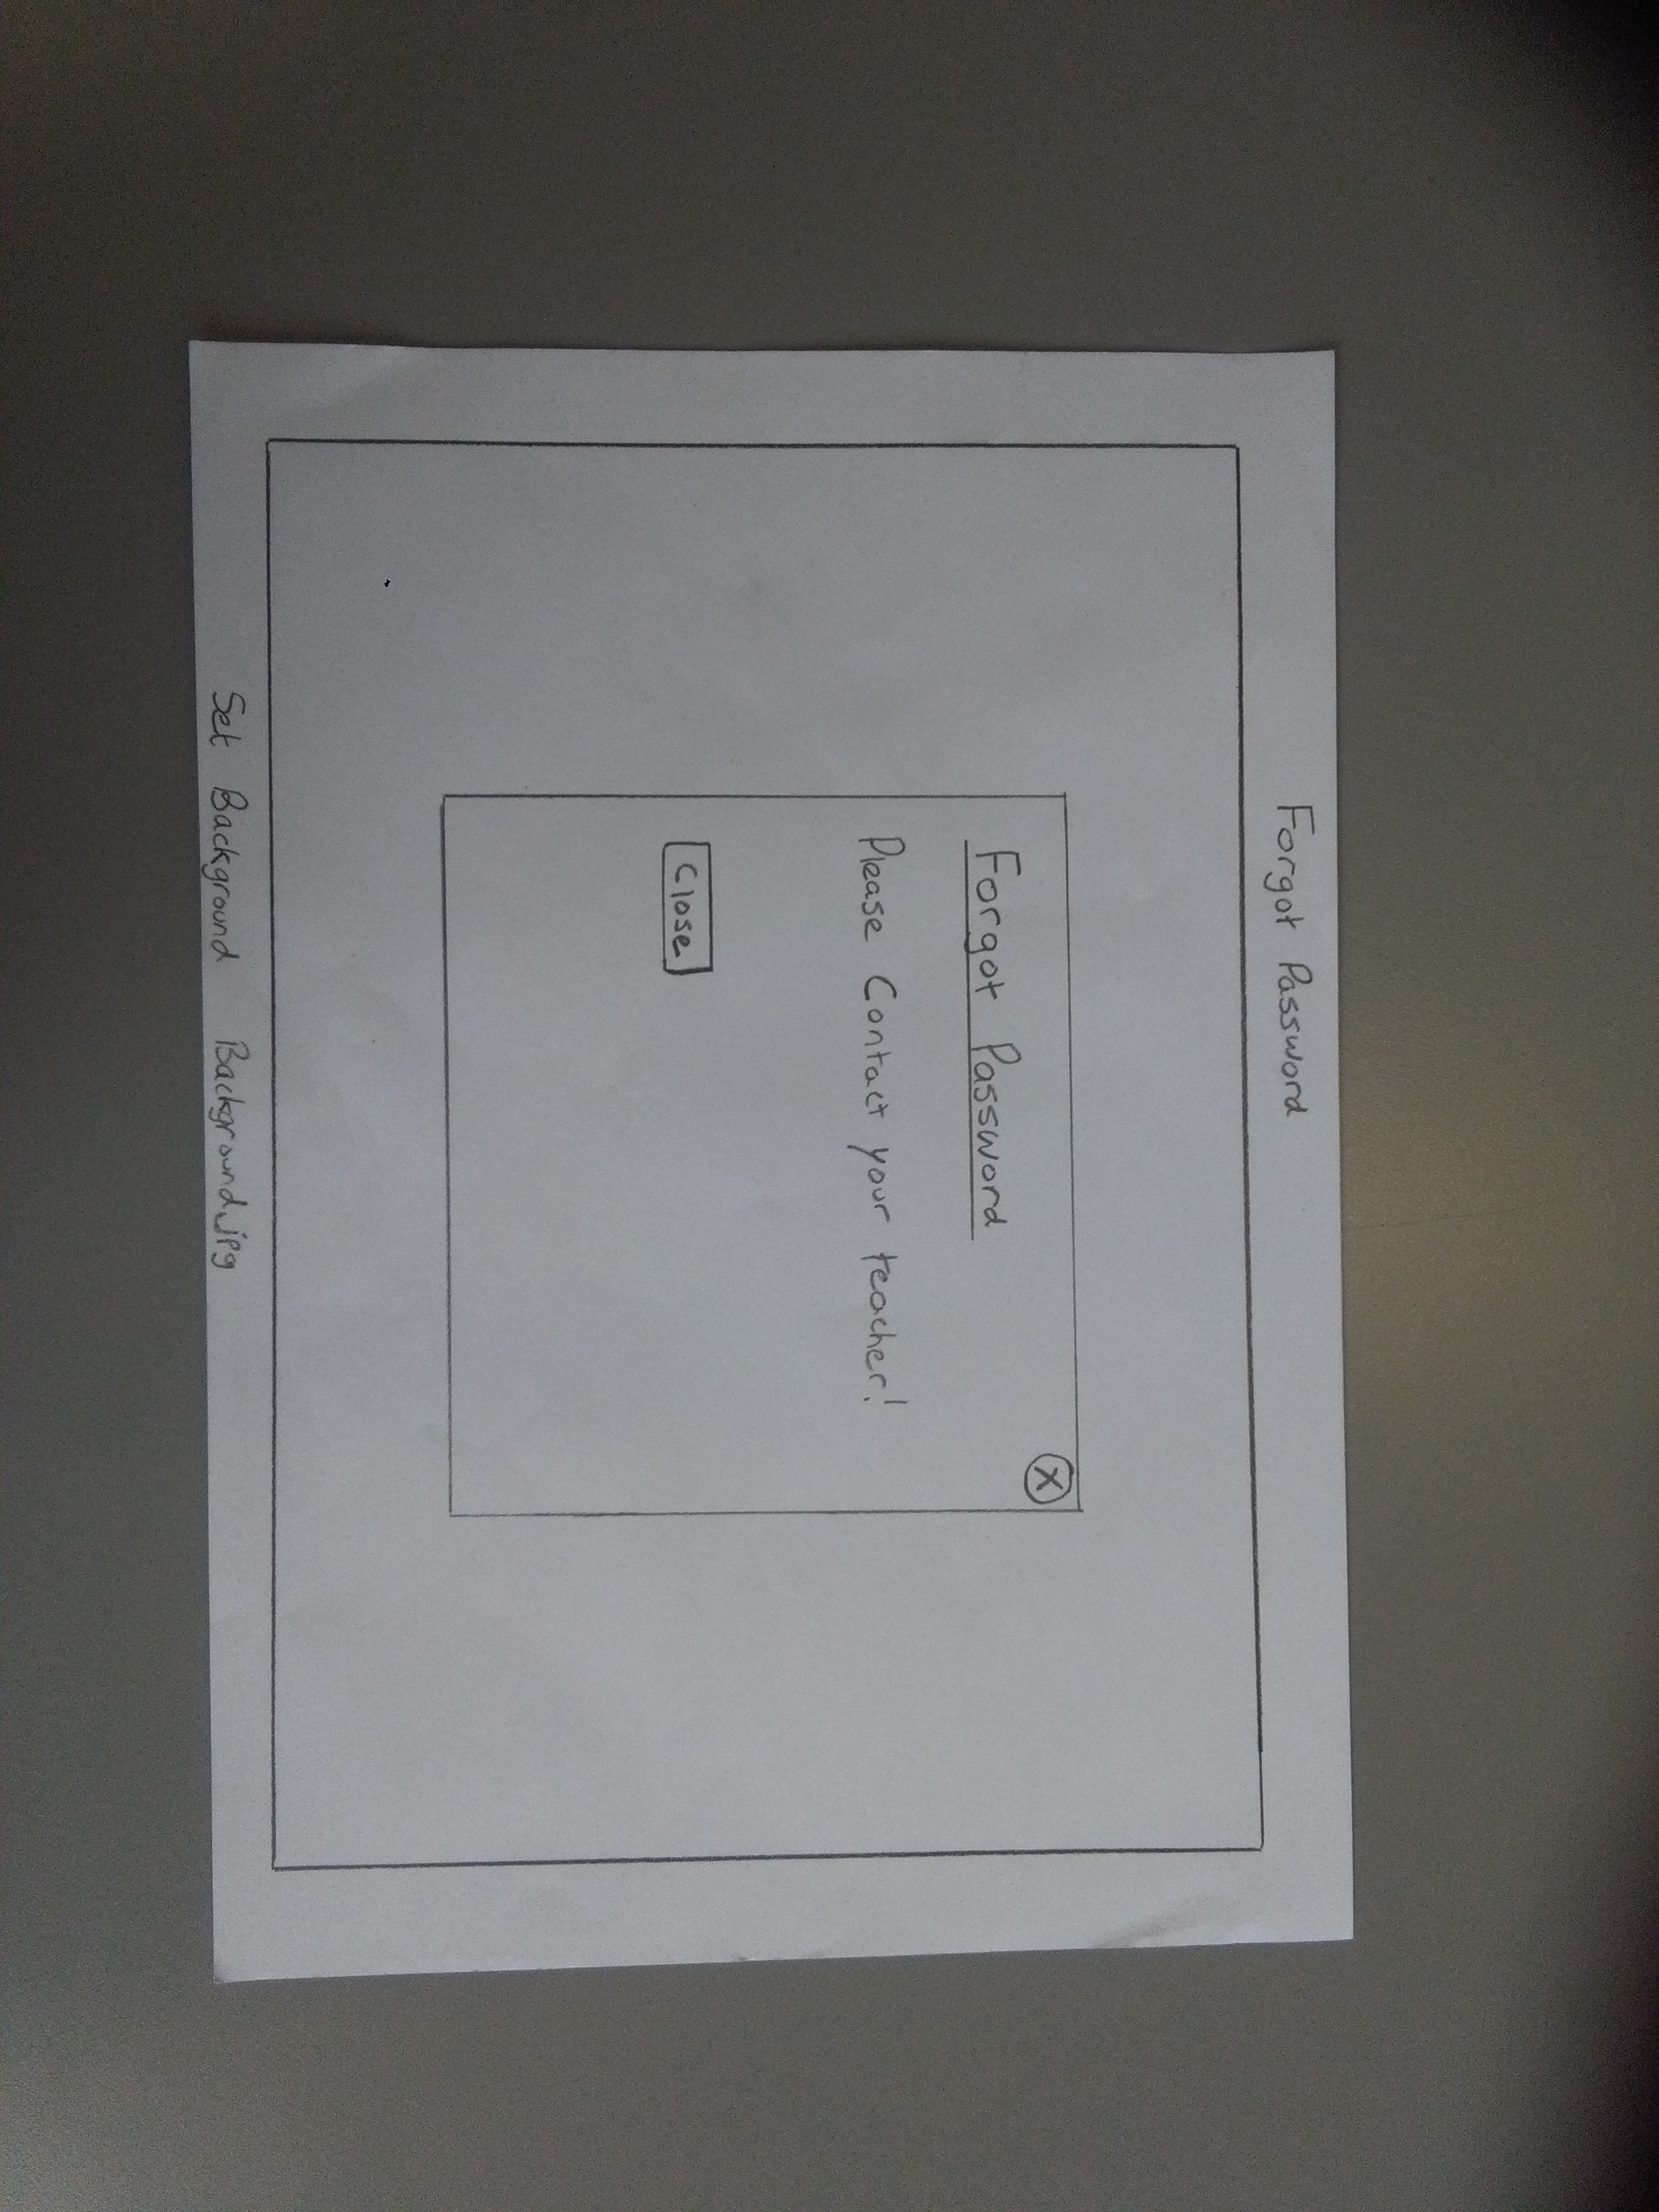 Forgot Password
X
Forgot Password
Please Contact your teacher!
Close
Set Background Background.jpg